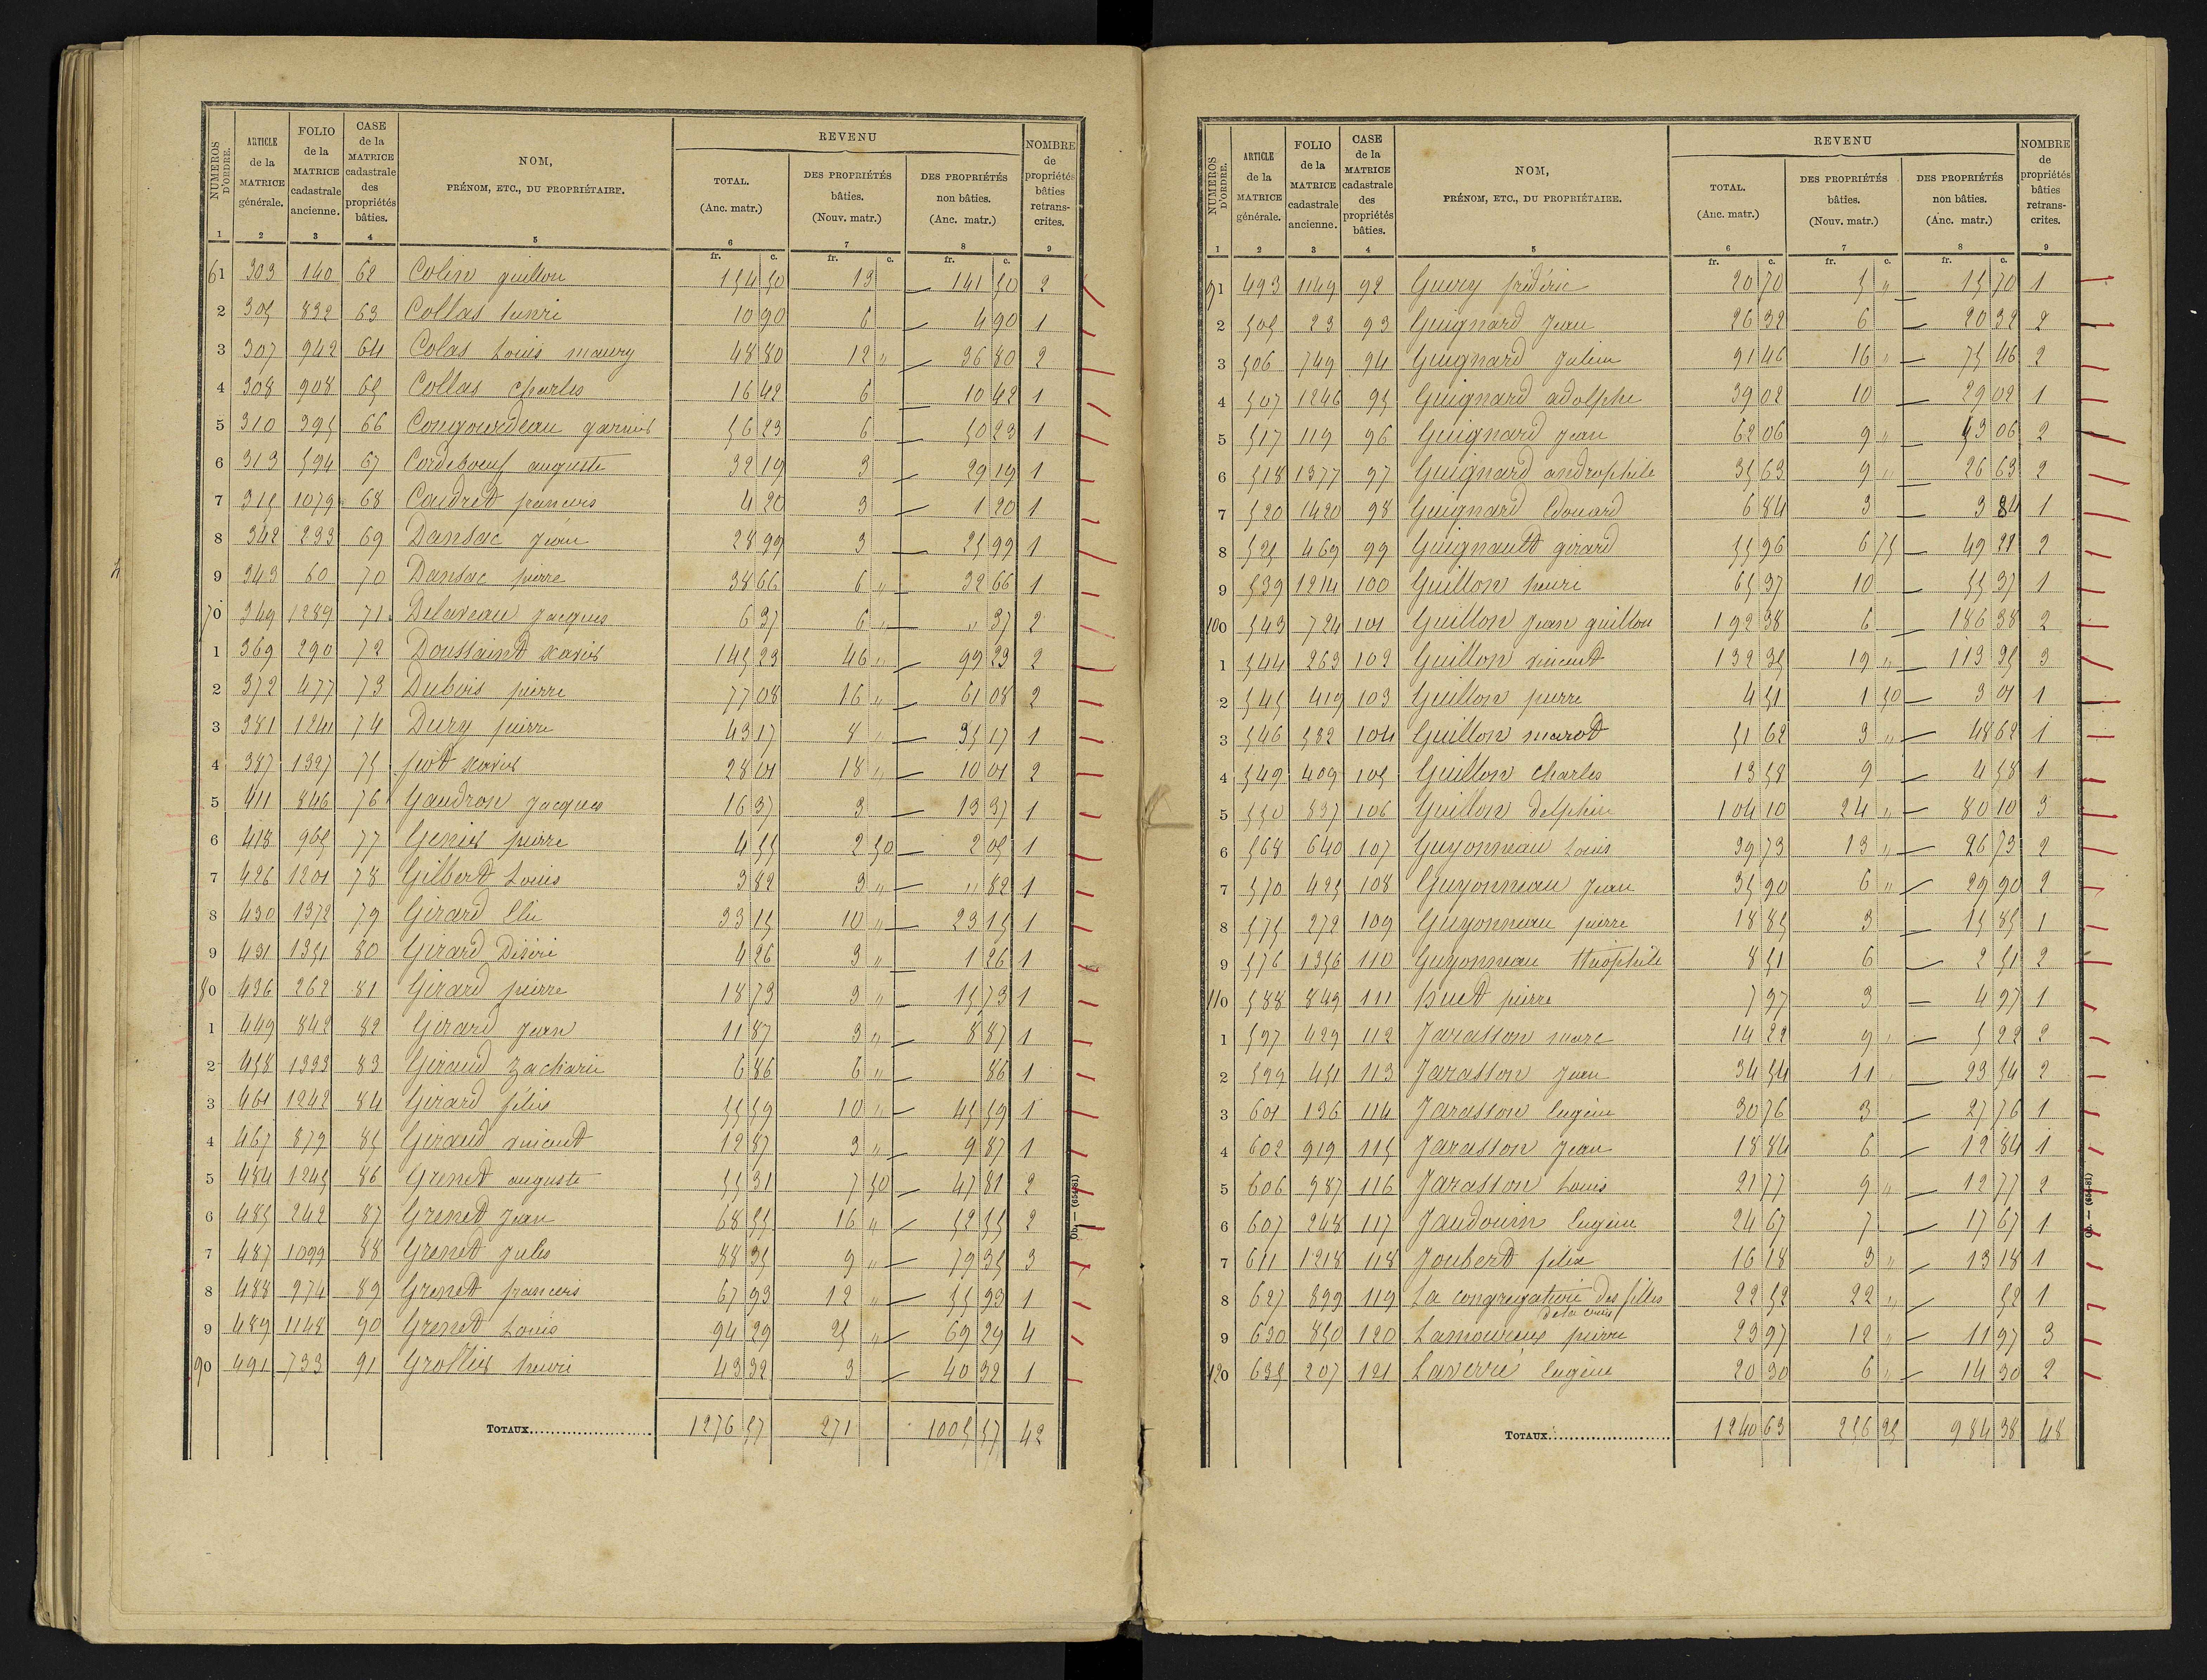 NUMEROS D'ORDRE. | ARTICLE de la MATRICE générale. | FOLIO de la MATRICE cadastrale ancienne. | CASE de la MATRICE cadastrale des propriétés bâties. | NOM, PRÉNOM, ETC., DU PROPRIÉTAIRE. | REVENU TOTAL. (Anc. matr.) | DES PROPRIÉTÉS bâties. (Nouv. matr.) | DES PROPRIÉTÉS non bâties. (Anc. matr.) | NOMBRE de propriétés bâties retranscrites.
1 2 3 4 5 6 7 8 9
fr. c. fr. c. fr. c.
61 303 140 62 Colin guillon 154 50 13 141 50 2
2 305 832 63 Collas henri 10 90 6 4 90 1
3 307 942 64 Colas Louis maury 48 80 12 " 36 80 2
4 308 908 65 Collas Charles 16 42 6 10 42 1
5 310 395 66 Congourdeau garnier 56 23 6 50 23 1
6 313 594 67 Cordeboeuf auguste 32 19 3 29 19 1
7 315 1079 68 Coudret francois 4 20 3 1 20 1
8 342 233 69 Dansac Jean 28 99 3 25 99 1
9 343 60 70 Dansac pierre 38 66 6 " 32 66 1
70 349 1289 71 Delaveau Jacques 6 37 6 " " 37 2
1 369 290 72 Doussaint xavier 145 23 46 " 99 23 2
2 372 477 73 Dubois pierre 77 08 16 " 61 08 2
3 381 1241 74 Dury pierre 43 17 8 " 35 17 1
4 387 1327 75 fiot xavier 28 01 18 " 10 01 2
5 411 846 76 Gaudron Jacques 16 37 3 13 37 1
6 418 965 77 Genier pierre 4 55 2 50 2 05 1
7 426 1201 78 Gilbert Louis 3 82 3 " " 82 1
8 430 1372 79 Girard Elie 33 15 10 " 23 15 1
9 431 1351 80 Girard Désiré 4 26 3 " 1 26 1
80 436 262 81 Girard pierre 18 73 3 " 15 73 1
1 449 842 82 Girard Jean 11 87 3 " 8 87 1
2 458 1333 83 Giraud Zacharie 6 86 6 " 86 1
3 461 1242 84 Girard félix 55 59 10 " 45 59 1
4 467 879 85 Giraud vincent 12 87 3 " 9 87 1
5 484 1245 86 Grenet auguste 55 31 7 50 47 81 2
6 485 242 87 Grenet Jean 68 55 16 " 52 55 2
7 487 1099 88 Grenet Jules 88 35 9 " 79 35 3
8 488 974 89 Grenet francois 67 93 12 " 55 93 1
9 489 1148 90 Grenet Louis 94 29 25 " 69 29 4
90 491 733 91 Grollier henri 43 32 3 40 32 1
TOTAUX 1276 57 271 1005 57 42
Ob. — (654-81)
NUMEROS D'ORDRE. | ARTICLE de la MATRICE générale. | FOLIO de la MATRICE cadastrale ancienne. | CASE de la MATRICE cadastrale des propriétés bâties. | NOM, PRÉNOM, ETC., DU PROPRIÉTAIRE. | REVENU TOTAL. (Anc. matr.) | DES PROPRIÉTÉS bâties. (Nouv. matr.) | DES PROPRIÉTÉS non bâties. (Anc. matr.) | NOMBRE de propriétés bâties retranscrites.
1 2 3 4 5 6 7 8 9
fr. c. fr. c. fr. c.
91 493 1149 92 Guery frédéric 20 70 5 " 15 70 1
2 505 23 93 Guignard Jean 26 32 6 20 32 2
3 506 749 94 Guignard Julien 91 46 16 " 75 46 2
4 507 1246 95 Guignard adolphe 39 02 10 29 02 1
5 517 119 96 Guignard Jean 62 06 9 " 53 06 2
6 518 1377 97 Guignard androphile 35 63 9 " 26 63 2
7 520 1420 98 Guignard Edouard 6 84 3 3 84 1
8 525 469 99 Guignault girard 55 96 6 75 49 21 2
9 539 1214 100 Guillon henri 65 37 10 55 37 1
100 543 724 101 Guillon Jean guillon 192 38 6 186 38 2
1 544 263 102 Guillon vincent 132 35 19 " 113 35 3
2 545 419 103 Guillon pierre 4 51 1 50 3 01 1
3 546 582 104 Guillon marot 51 62 3 " 48 62 1
4 549 409 105 Guillon Charles 13 58 9 4 58 1
5 550 837 106 Guillon delphin 104 10 24 " 80 10 3
6 568 640 107 Guyonneau Louis 39 73 13 " 26 73 2
7 570 425 108 Guyonneau Jean 35 90 6 " 29 90 2
8 575 272 109 Guyonneau pierre 18 85 3 15 85 1
9 576 1356 110 Guyonneau théophile 8 51 6 2 51 2
110 588 849 111 huet pierre 7 97 3 4 97 1
1 597 429 112 Jarasson marc 14 22 9 " 5 22 2
2 599 451 113 Jarasson Jean 34 54 11 23 54 2
3 601 136 114 Jarasson Eugène 30 76 3 27 76 1
4 602 919 115 Jarasson Jean 18 84 6 12 84 1
5 606 987 116 Jarasson Louis 21 77 9 " 12 77 2
6 607 248 117 Jaudouin Eugène 24 67 7 17 67 1
7 611 1218 118 Joubert félix 16 18 3 " 13 18 1
8 627 899 119 La congregation des filles de la croix 22 52 22 " 52 1
9 630 850 120 Lamoureux pierre 23 97 12 " 11 97 3
120 635 207 121 Laverré Eugène 20 30 6 " 14 30 2
TOTAUX 1240 63 256 25 984 38 48
Ob. — (654-81)